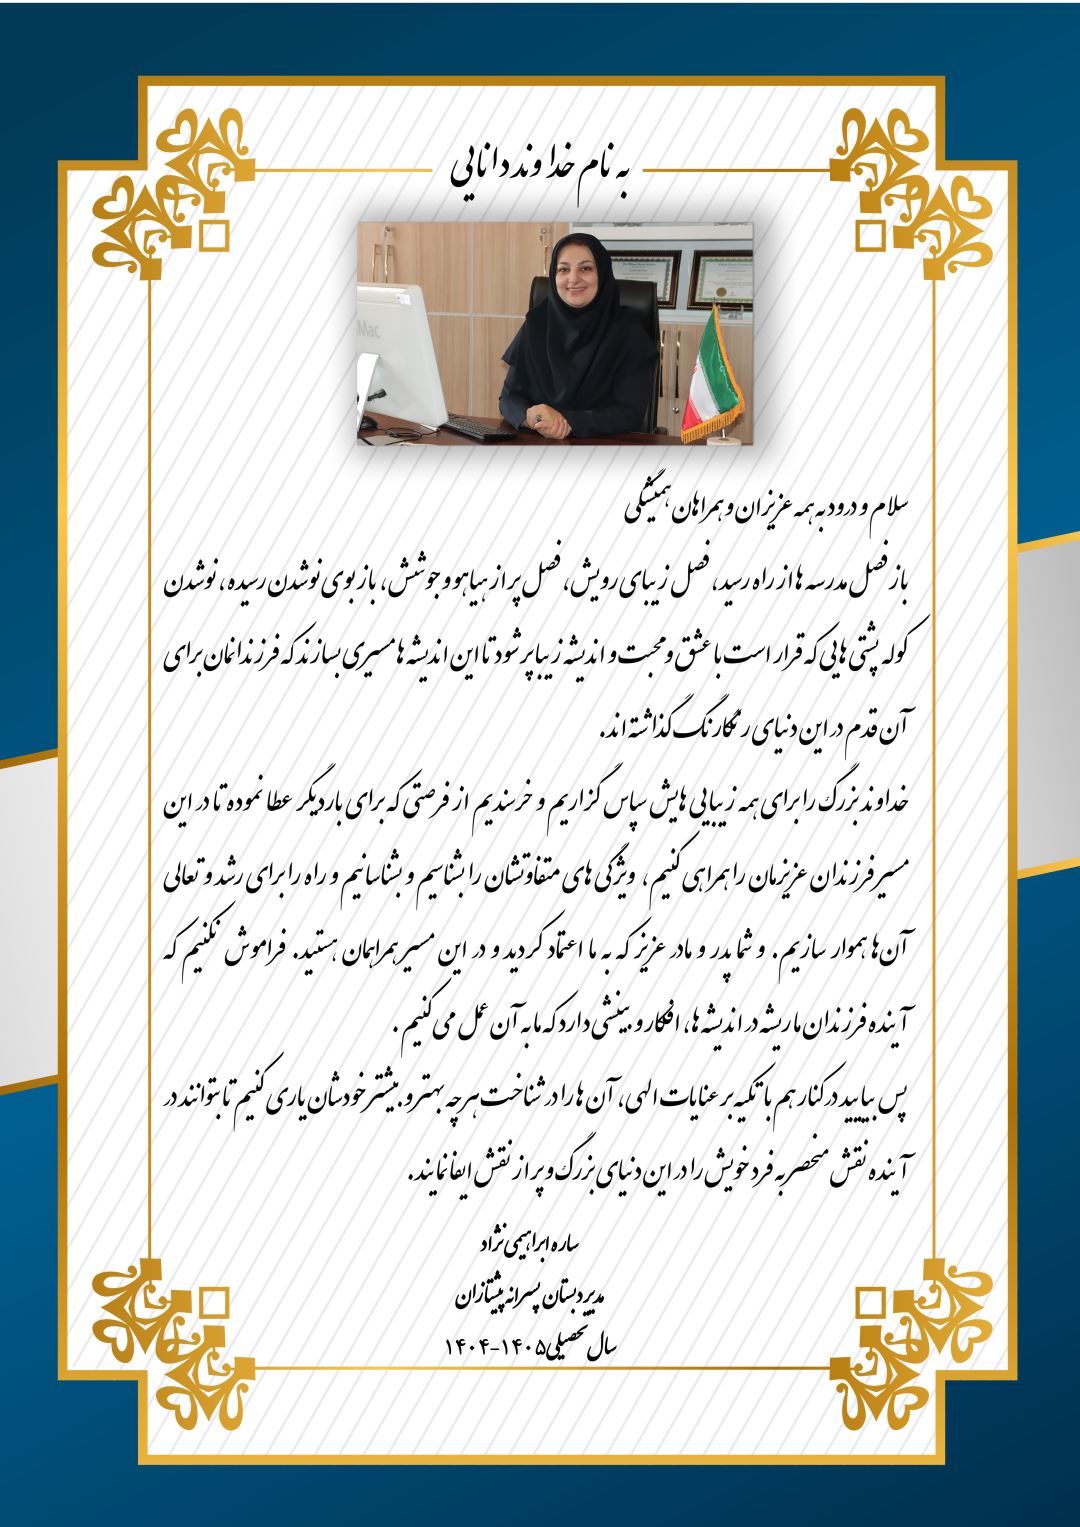 به نام خداوند دانایی
Mac
سلام و درود به همه عزیزان و همراهان همیشگی
باز فصل مدرسه ها از راه رسید، فصل زیبای رویش، فصل پر از هیاهو و جوشش، باز بوی نوشدن رسیده، نوشدن
کوله پشتی هایی که قرار است با عشق و محبت و اندیشه زیبا پر شود تا این اندیشه ها مسیری بسازند که فرزندانمان برای
آن قدم در این دنیای رنگارنگ گذاشته اند.
خداوند بزرگ را برای همه زیبایی هایش سپاس گزاریم و خرسندیم از فرصتی که برای بار دیگر عطا نموده تا در این
مسیر فرزندان عزیزمان را همراهی کنیم، ویژگی های متفاوتشان را بشناسیم و بشناسانیم و راه را برای رشد و تعالی
آن ها هموار سازیم. و شما پدر و مادر عزیز که به ما اعتماد کردید و در این مسیر همراهمان هستید. فراموش نکنیم که
آینده فرزندان ما ریشه در اندیشه ها، افکار و بینشی دارد که ما به آن عمل می کنیم .
پس بیایید در کنار هم با تکیه بر عنایات الهی، آن ها را در شناخت هرچه بهتر و بیشتر خودشان یاری کنیم تا بتوانند در
آینده نقش منحصر به فرد خویش را در این دنیای بزرگ و پر از نقش ایفا نمایند.
ساره ابراهیمی نژاد
مدیر دبستان پسرانه پیشتازان
سال تحصیلی ۱۴۰۵-۱۴۰۴